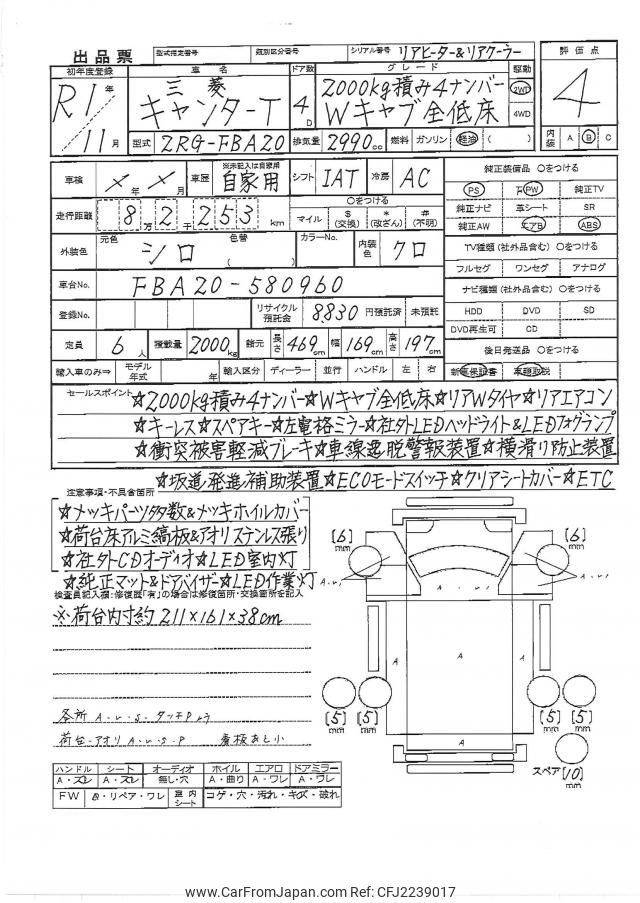 出品票
型式指定番号 類別区分番号 シリアル番号 リアヒーター&リアクーラー
初年度登録 車名 ドア数 グレード 駆動 評価点
R1年 三菱 2000kg積み4ナンバー 2WD 4
11月 キャンターT 4D Wキャブ全低床 4WD
型式 ZRG-FBA20 排気量 2990cc 燃料 ガソリン 軽油 内装 A B C
車検 ×年×月 車歴 ※未記入は自家用 自家用 シフト IAT 冷房 AC
純正装備品 ○をつける
PS PW 純正TV
純正ナビ 革シート SR
純正AW エアB ABS
走行距離 8万2千253km ○をつける マイル $(交換) *(改ざん) #(不明)
TV種類(社外品含む) ○をつける
フルセグ ワンセグ アナログ
外装色 元色 シロ 色替 ( ) カラーNo. 内装色 クロ
車台No. FBA20-580960
ナビ種類(社外品含む) ○をつける
HDD DVD SD
DVD再生可 CD
登録No. リサイクル預託金 8,830 円預託済 未預託
定員 6人 積載量 2000kg 諸元 長さ 469cm 幅 169cm 高さ 197cm
後日発送品 ○をつける
新車保証書 車輌取説
輸入車のみ⇒ モデル年式 年 輸入区分 ディーラー 並行 ハンドル 左 右
セールスポイント ☆2000kg積み4ナンバー☆Wキャブ全低床☆リアWタイヤ☆リアエアコン
☆キーレス☆スペアキー☆左電格ミラー☆社外LEDヘッドライト&LEDフォグランプ
☆衝突被害軽減ブレーキ☆車線逸脱警報装置☆横滑り防止装置
☆坂道発進補助装置☆ECOモードスイッチ☆クリアシートカバー☆ETC
注意事項・不具合箇所
☆メッキパーツ多数&メッキホイルカバー
☆荷台床アルミ縞板&アオリステンレス張り
☆社外CDオーディオ☆LED室内灯
☆純正マット&ドアバイザー☆LED作業灯
検査員記入欄:修復歴「有」の場合は修復箇所・交換箇所を記入
※荷台内寸約211×161×38cm
各所 A・U・S・タッチP
荷台・アオリ A・U・S・P 看板あと小
[6]mm [6]mm
A・U A・U・S A・U
A A A
[5]mm [5]mm [5]mm [5]mm
A
スペア[10]mm
ハンドル シート オーディオ ホイル エアロ ドアミラー
A・スレ A・スレ 無し・穴 A・曲り A・ワレ A・ワレ
FW B・リペア・ワレ 室内シート コゲ・穴・汚れ・キズ・破れ
www.CarFromJapan.com Ref: CFJ2239017